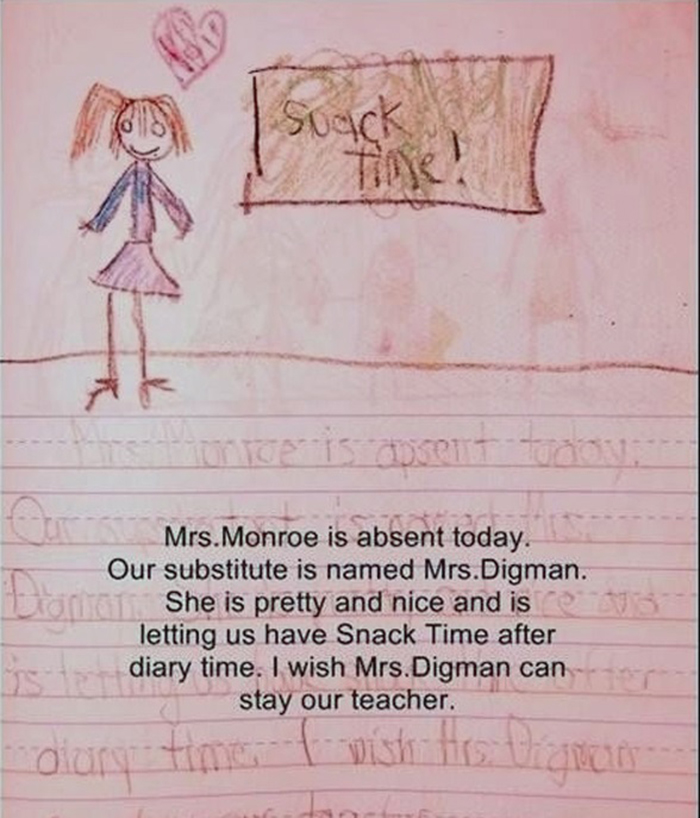 Suack
Time!
Mrs. Monroe is apsent today.
Our is named Mrs.
Mrs.Monroe is absent today.
Our substitute is named Mrs.Digman.
She is pretty and nice and is
letting us have Snack Time after
diary time. I wish Mrs.Digman can
stay our teacher.
Digman. and
is letting after
diary time. I wish Mrs. Digman